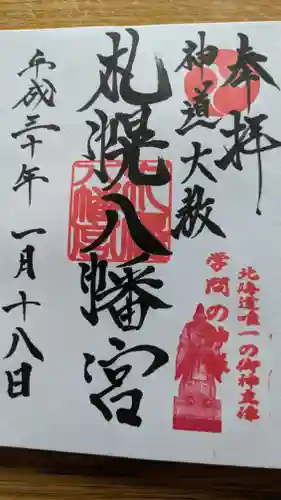 奉拝
神道大教
札幌八幡宮
平成三十年 一月十八日
北海道唯一の御神立像
学問の神様